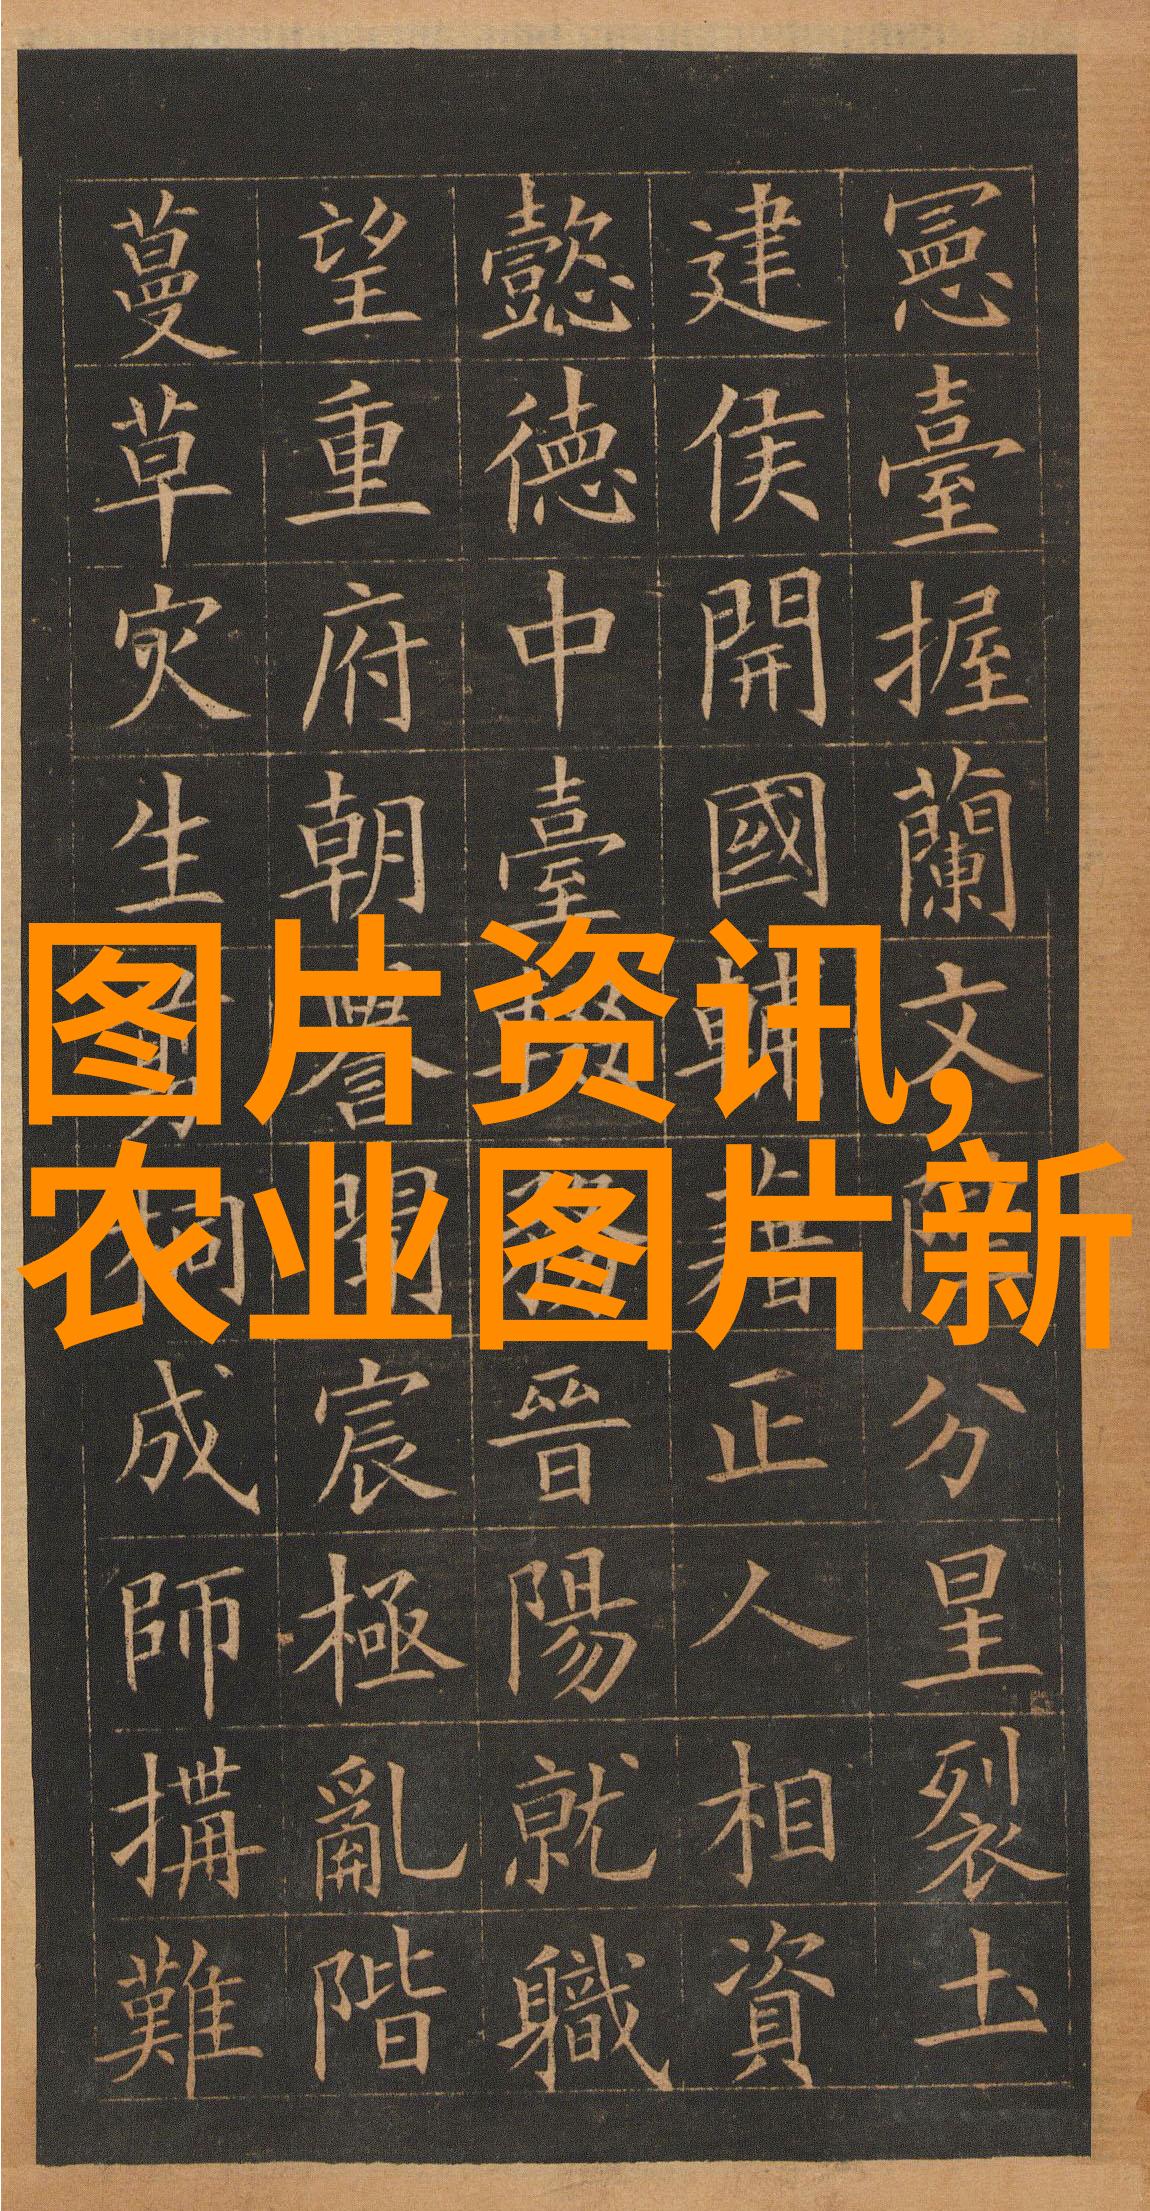 图片资讯,
农业图片新
憲臺握蘭文分星裂土
建侯開國輔藉正人相資
懿德中臺晉陽就職
望重府朝譽聞宸極亂階
蔓草灾生桐成師搆難